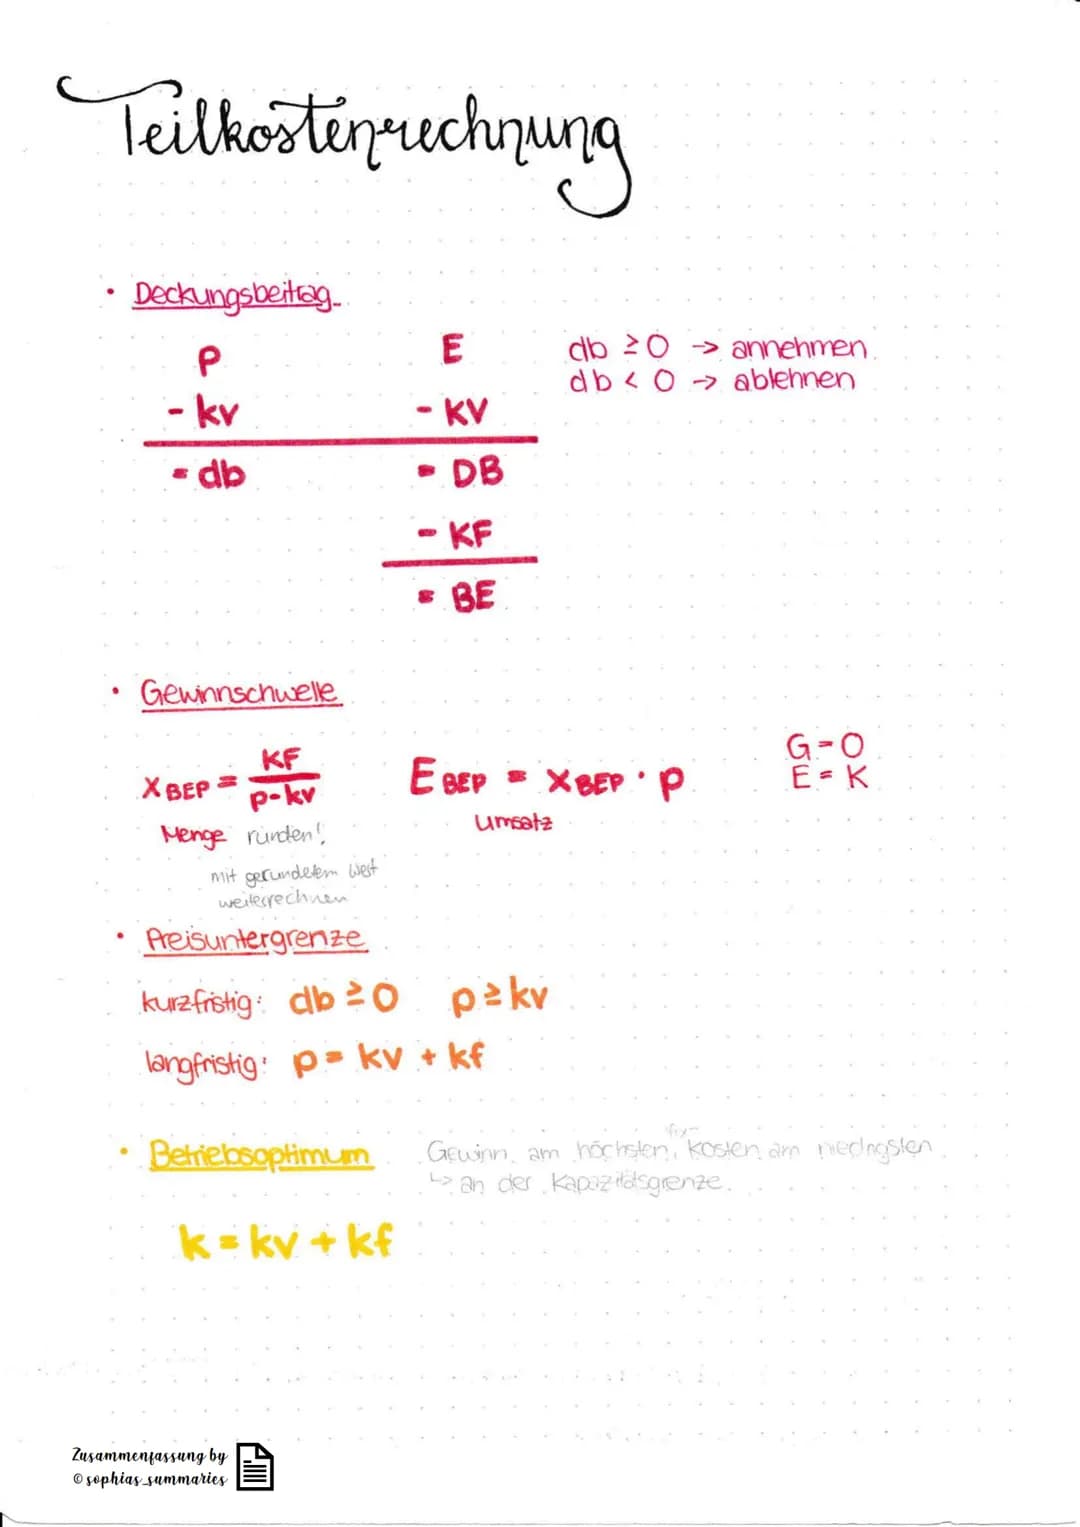 Teilkostenrechnung
• Deckungsbeitrag
P E db ≥ 0 → annehmen
- kv - KV db < 0 → ablehnen
= db = DB
- KF
= BE
• Gewinnschwelle
X BEP = KF / p - kv E BEP = X BEP · p G = 0
E = K
Menge runden! Umsatz
mit gerundetem Wert
weiterrechnen
• Preisuntergrenze
kurzfristig: db ≥ 0 p ≥ kv
langfristig: p = kv + kf
• Betriebsoptimum Gewinn am höchsten, fix- Kosten am niedrigsten
↳ an der Kapazitätsgrenze
k = kv + kf
Zusammenfassung by
© sophias_summaries